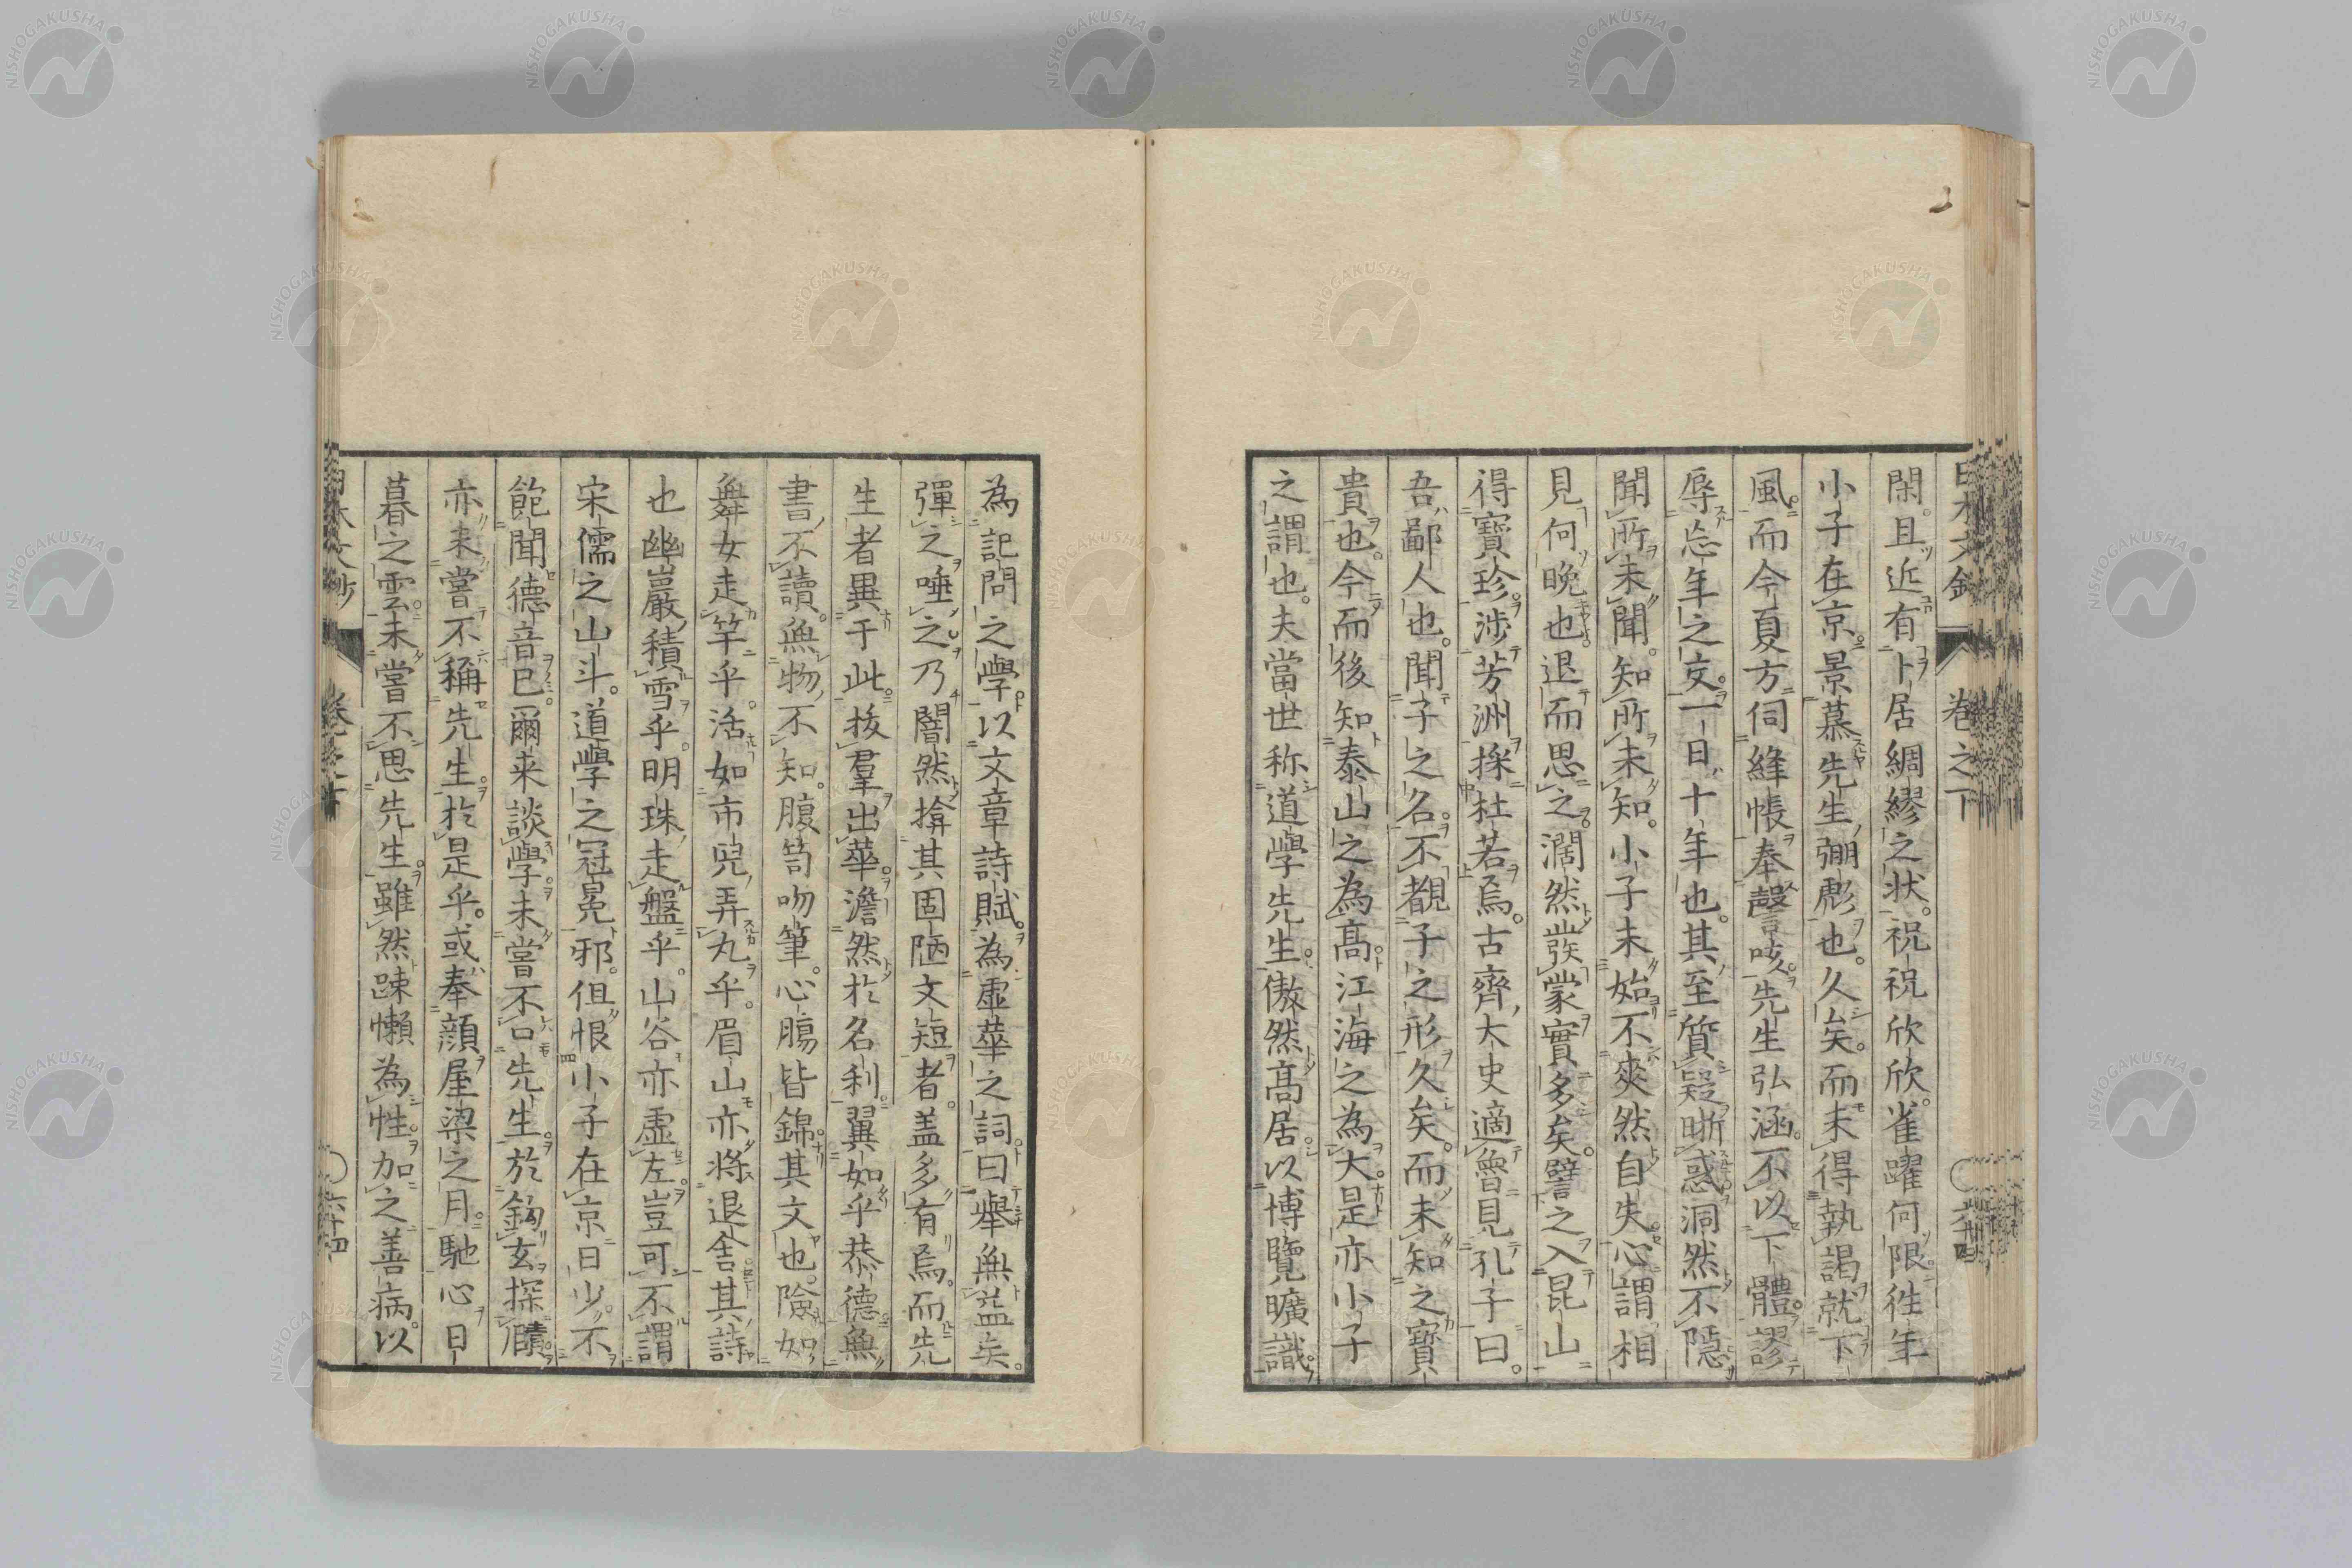 日本文鈔 卷之下
閑。且近有卜居綢繆之状。祝祝欣欣。雀躍何限。徃年
小子在京。景慕先生弸彪也。久矣。而未得執謁就下
風。而今夏方伺絳帳奉謦咳。先生弘涵。不以下體。謬
辱忘年之交。一日十年也。其至質疑晰惑。洞然不隱。
聞所未聞。知所未知。小子未始不爽然自失。心謂相
見何晩也。退而思之。濶然發蒙實多矣。譬之入昆山
得寶珍。渉芳洲採杜若焉。古齊大史適魯見孔子曰。
吾鄙人也。聞子之名。不覩子之形久矣。而未知之寶
貴也。今而後知泰山之為髙。江海之為大。是亦小子
之謂也。夫當世称道學先生。傲然髙居。以博覽曠識
為記問之學。以文章詩賦。為虛華之詞。曰舉無益矣。
彈之唾之。乃闇然揜其固陋文短者。盖多有焉。而先
生者異于此。抜羣出萃。澹然於名利。翼如乎恭德。無
書不讀。無物不知。腹笥吻筆。心膓皆錦。其文也。險如
舞女走竿乎。活如市兒弄丸乎。眉山亦將退舍。其詩
也幽巖積雪乎。明珠走盤乎。山谷亦虛左。豈可不謂
宋儒之山斗。道學之冠冕邪。但恨小子在京日少。不
飽聞德音已。爾来談學。未嘗不口先生。於鈎玄探賾。
亦未嘗不稱先生。於是乎。或奉顏屋梁之月。馳心日
暮之雲。未嘗不思先生。雖然踈懶為性。加之善病。以
日本文鈔 卷之下 六十四
NISHOGAKUSHA